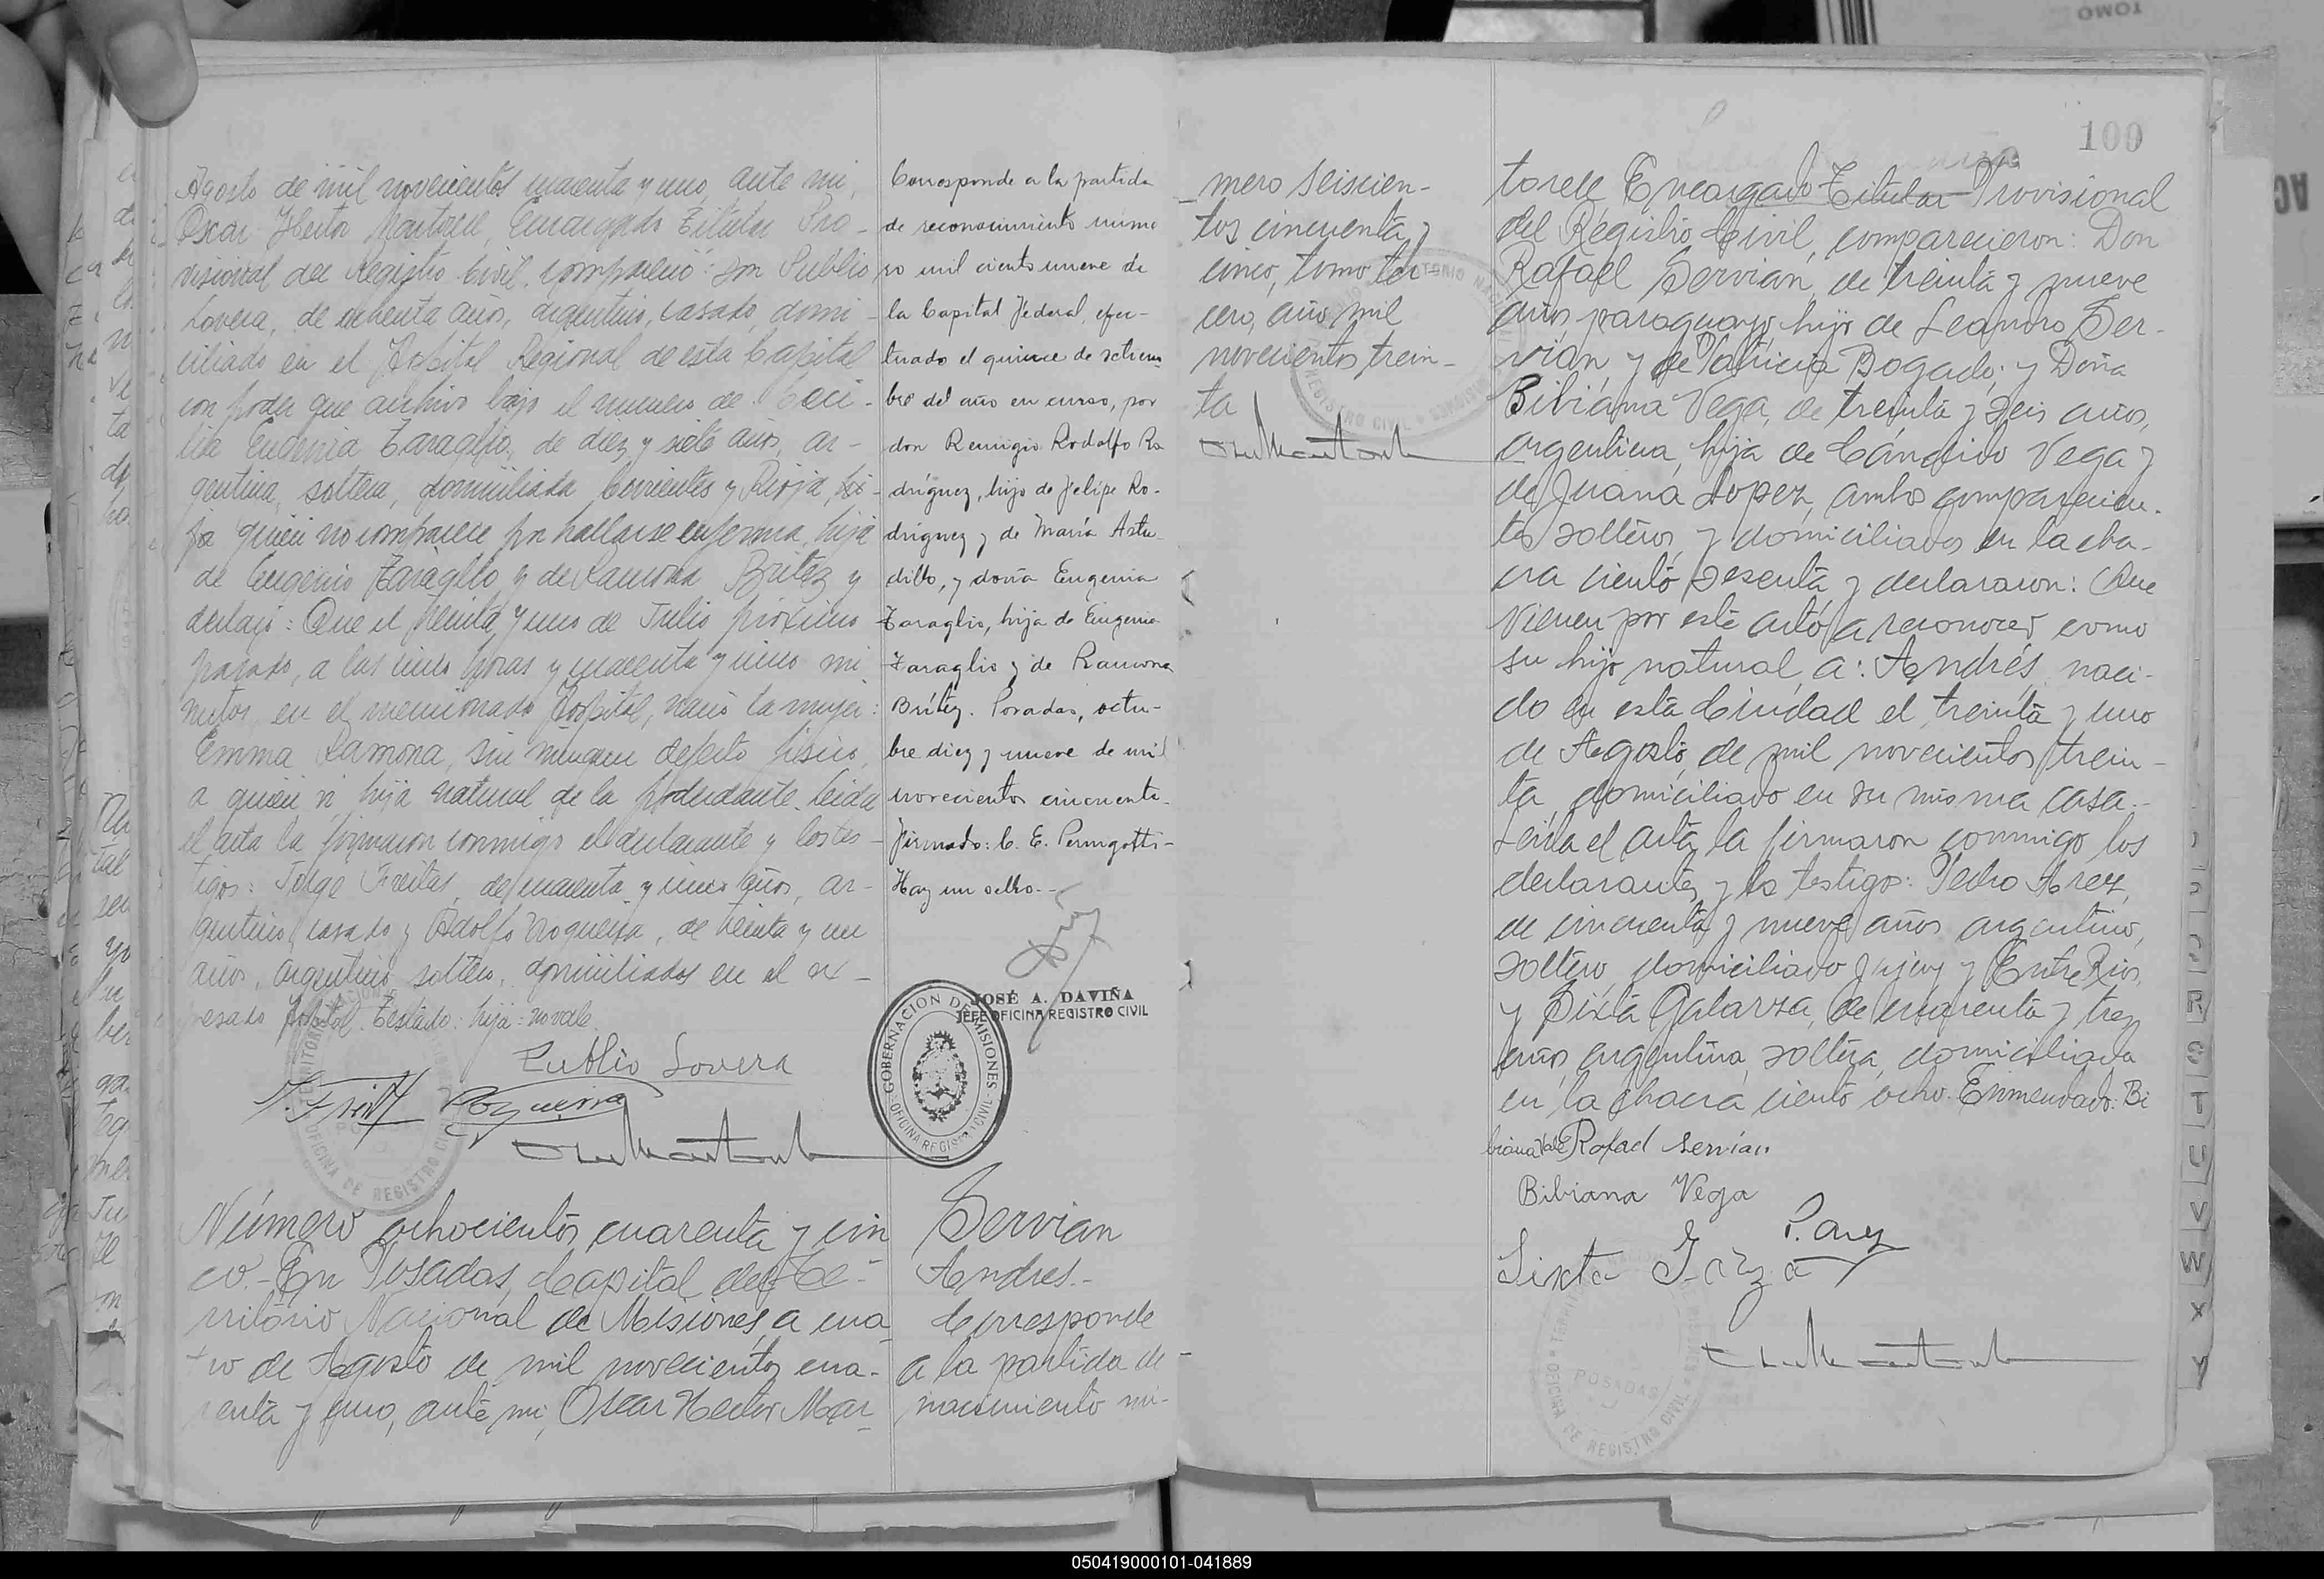 Agosto de mil novecientos cuarenta y uno, ante mi,
Oscar Hector Martorell, Encargado Titular Pro-
visional del Registro Civil, compareció: don Publio
Lovera, de ochenta años, argentino, casado, domi-
ciliado en el Hospital Regional de esta Capital
con poder que archivo bajo el numero de Ceci-
lia Eugenia Zaraglio, de diez y siete años, ar-
gentina, soltera, domiciliada Corrientes y Rioja, hi-
ja quien no comparece por hallarse enferma, hija
de Eugenio Zaraglio y de Ramona Britez y
declaró: Que el treinta y uno de Julio próximo
pasado, a las cinco horas y cuarenta y cinco mi-
nutos, en el mencionado Hospital, nació la mujer:
Emma Ramona, sin ningun defecto fisico,
a quien vi, hija natural de la poderdante. Leida
el acta la firmaron conmigo el declarante y los tes-
tigos: Jorge Freitas, de cuarenta y cinco años, ar-
gentino, casado y Adolfo Noguera, de treinta y un
años, argentino, soltero, domiciliados en el ex-
presado Hospital. Testado: hija: no vale.
Publio Lovera
J. Freitas Noguera
Corresponde a la partida
de reconocimiento núme
ro mil ciento nueve de
la Capital Federal, efec-
tuado el quince de setiem
bre del año en curso, por
don Remigio Rodolfo Ro
dríguez, hijo de Felipe Ro-
dríguez y de María Astu-
dillo, y doña Eugenia
Zaraglio, hija de Eugenio
Zaraglio y de Ramona
Brítez. Posadas, octu-
bre diez y nueve de mil
novecientos cincuenta.
Firmado: C. E. Pernigotti-
Hay un sello.-
JOSÉ A. DAVIÑA
JEFE OFICINA REGISTRO CIVIL
GOBERNACION DE MISIONES
OFICINA REGISTRO CIVIL
Número ochocientos cuarenta y cin
co.- En Posadas, Capital del Te-
rritorio Nacional de Misiones, a cua
tro de Agosto de mil novecientos cua-
renta y uno, ante mi, Oscar Hector Mar
Servian
Andres.-
Corresponde
a la partida de
nacimiento nú-
mero seiscien-
tos cincuenta y
cinco, tomo ter
cero, año mil
novecientos trein-
ta
100
torell Encargado Titular Provisional
del Registro Civil, comparecieron: Don
Rafael Servian, de treinta y nueve
años, paraguayo, hijo de Leandro Ser-
vian y de Patricia Bogado; y Doña
Bibiana Vega, de treinta y seis años,
argentina, hija de Cándido Vega y
de Juana Lopez, ambos comparecien-
tes solteros y domiciliados en la cha-
cra ciento sesenta y declararon: Que
vienen por este acto a reconocer como
su hijo natural a: Andrés, naci-
do en esta Ciudad el treinta y uno
de Agosto de mil novecientos trein-
ta, domiciliado en su misma casa.-
Leida el acta la firmaron conmigo los
declarantes y los testigos: Pedro Arez,
de cincuenta y nueve años argentino,
soltero, domiciliado Jujuy y Entre Rios,
y Sixta Galarza, de cuarenta y tres
años, argentina, soltera, domiciliada
en la chacra ciento ocho. Enmendado: Bi
biana Vale Rafael Servian
Bibiana Vega
P. Arez
Sixta
POSADAS
OFICINA DE REGISTRO CIVIL
R
S
T
U
V
W
X
Y
TOMO
050419000101-041889